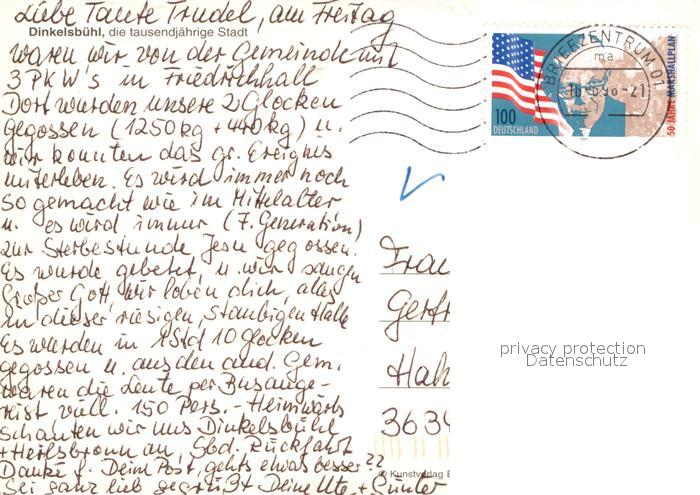 Liebe Tante Trudel, am Freitag
Dinkelsbühl, die tausendjährige Stadt
waren wir von der Gemeinde mit
3 PKW's in Friedrichhall
Dort wurden unsere 2 Glocken
gegossen (1250 kg + 440 kg) u.
wir konnten das gr. Ereignis
miterleben. Es wird immer noch
so gemacht wie im Mittelalter
u. es wird immer (7. Generation)
zur Sterbestunde Jesu gegossen.
Es wurde gebetet, u. wir sangen
Großer Gott, wir loben dich, alles
in dieser riesigen, staubigen Halle
Es wurden in 1 Std 10 Glocken
gegossen u. aus den and. Gem.
waren die Leute per Bus ange-
reist viell. 150 Pers. - Heimwärts
schauten wir uns Dinkelsbühl
+ Heilsbronn an, Sbd. Rückfahrt
Danke f. Deine Post, gehts etwas besser??
Sei ganz lieb gegrüßt Deine Ute + Günter
BRIEFZENTRUM 01
ma
-21
100
DEUTSCHLAND
50 JAHRE MARSHALLPLAN
Frau
Gertr
Hah
3634
privacy protection
Datenschutz
© Kunstverlag E